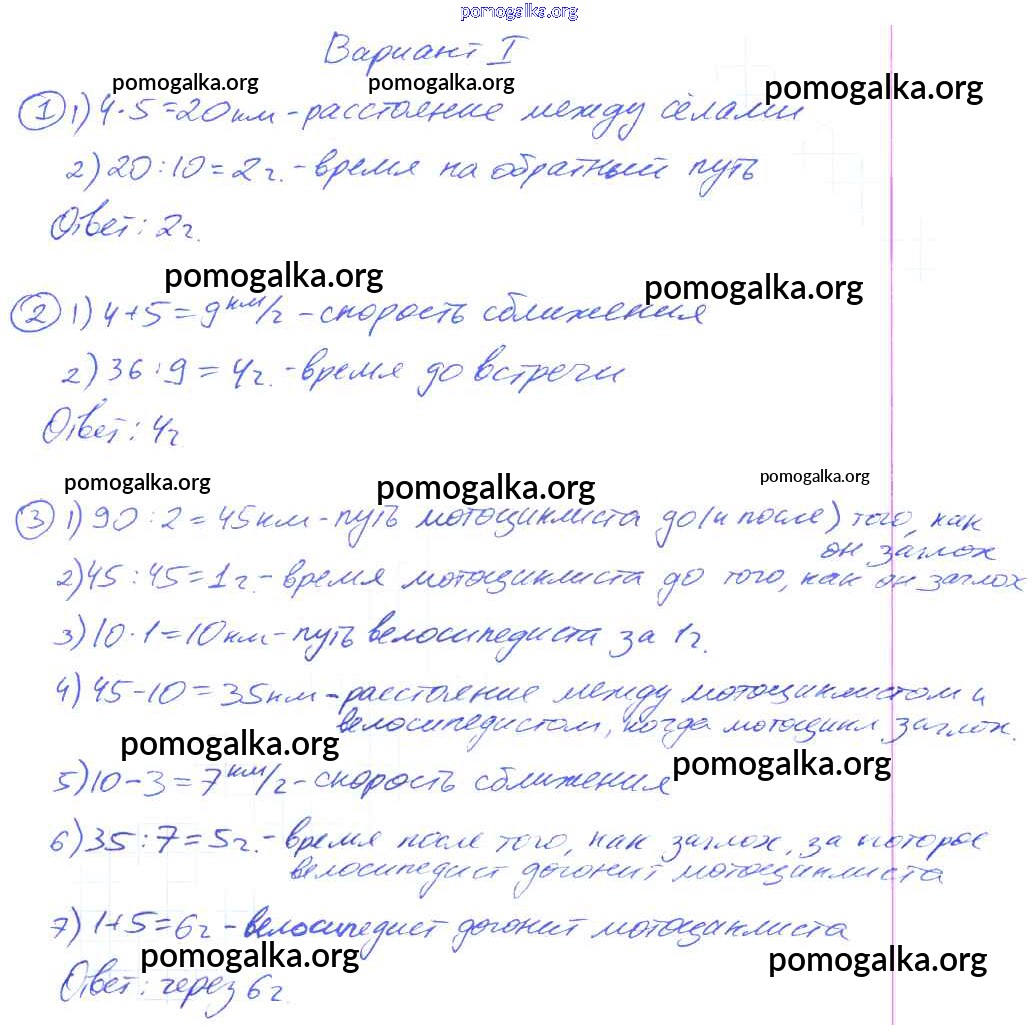 pomogalka.org
Вариант I
pomogalka.org pomogalka.org pomogalka.org
① 1) 4·5=20км - расстояние между сёлами
2) 20:10=2ч. - время на обратный путь
Ответ: 2ч.
pomogalka.org pomogalka.org
② 1) 4+5=9км/ч - скорость сближения
2) 36:9=4ч. - время до встречи
Ответ: 4ч
pomogalka.org pomogalka.org pomogalka.org
③ 1) 90:2=45км - путь мотоциклиста до (и после) того, как
он заглох
2) 45:45=1ч. - время мотоциклиста до того, как он заглох
3) 10·1=10км - путь велосипедиста за 1ч.
4) 45-10=35км - расстояние между мотоциклистом и
велосипедистом, когда мотоцикл заглох.
pomogalka.org pomogalka.org
5) 10-3=7км/ч - скорость сближения
6) 35:7=5ч. - время после того, как заглох, за которое
велосипедист догонит мотоциклиста
7) 1+5=6ч - велосипедист догонит мотоциклиста
pomogalka.org pomogalka.org
Ответ: через 6ч.